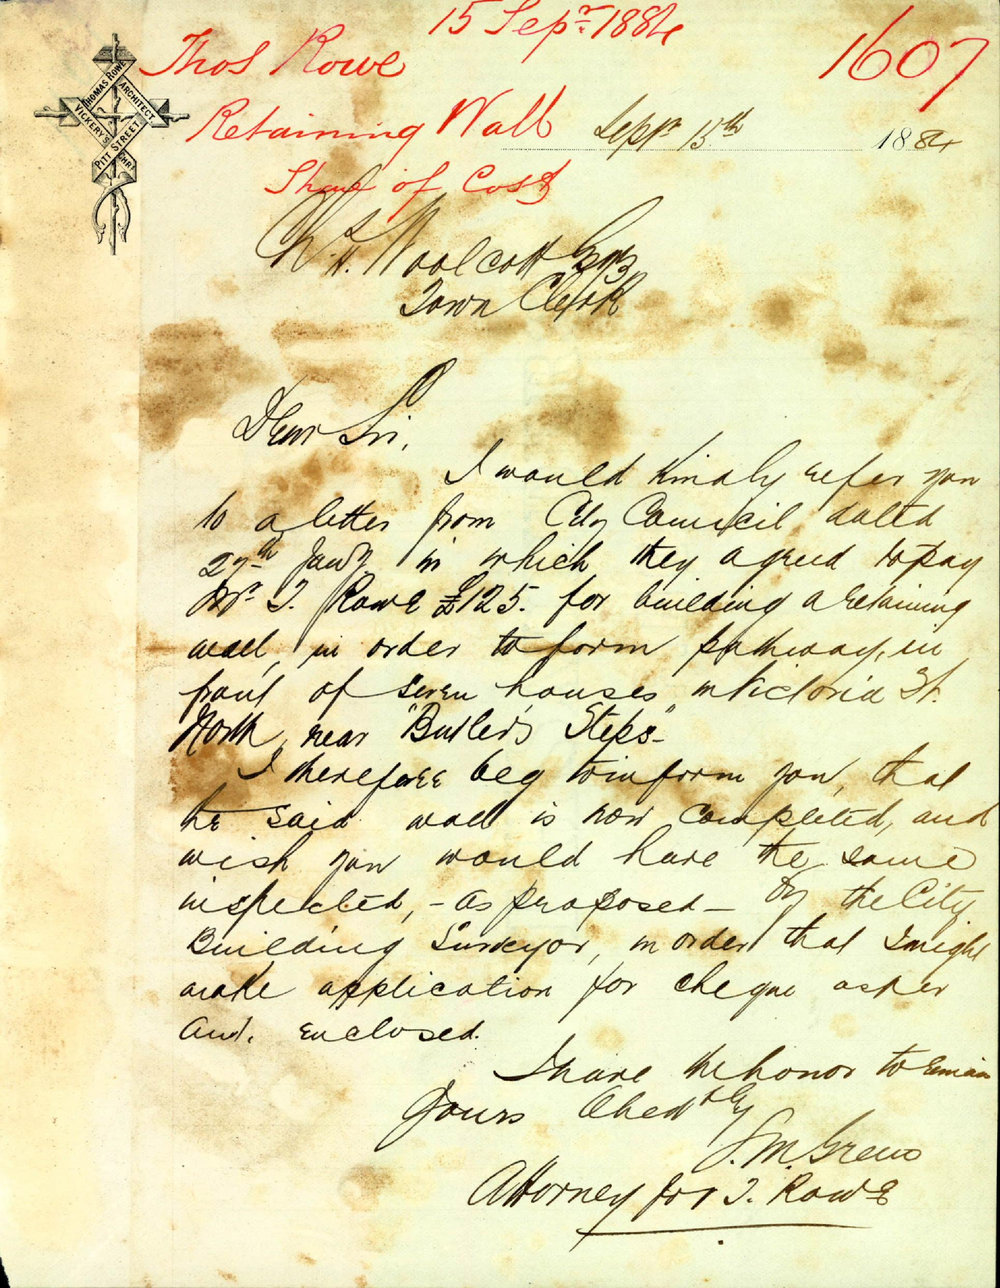 15 Sepr. 1884
1607
Thos Rowe
Retaining Wall
Share of Cost
THOMAS ROWE
ARCHITECT
VICKERY'S
PITT STREET
Septr 15th 1884
Woolcott Esq
Town Clerk
Dear Sir,
I would kindly refer you
to a letter from City Council dated
27th Jany. in which they agreed to pay
Mr. T. Rowe £125. for building a retaining
wall, in order to form pathway, in
front of seven houses in Victoria St.
North, near "Butler's Steps"-
I therefore beg to inform you, that
he said wall is now completed, and
wish you would have the same
inspected, - as proposed - by the City
Building Surveyor, in order that I might
make application for cheque as per
enclosed.
I have the honor to
Yours Obedtly
Attorney for T. Rowe